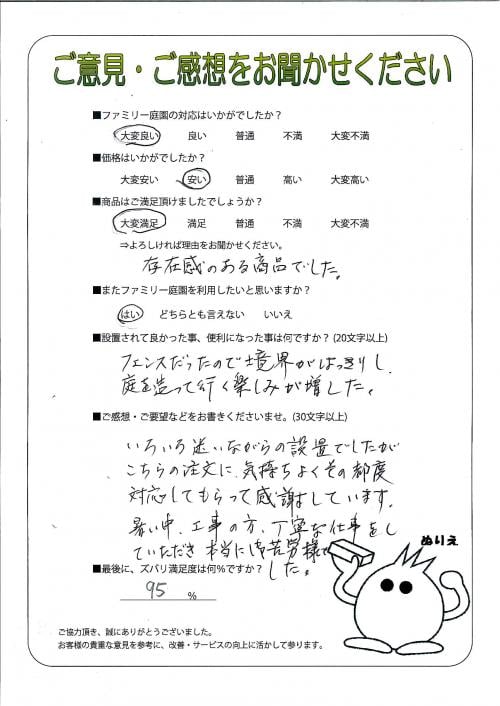 ご意見・ご感想をお聞かせください
■ファミリー庭園の対応はいかがでしたか?
大変良い 良い 普通 不満 大変不満
■価格はいかがでしたか?
大変安い 安い 普通 高い 大変高い
■商品はご満足頂けましたでしょうか?
大変満足 満足 普通 不満 大変不満
⇒よろしければ理由をお聞かせください。
存在感のある商品でした。
■またファミリー庭園を利用したいと思いますか?
はい どちらとも言えない いいえ
■設置されて良かった事、便利になった事は何ですか? (20文字以上)
フェンスだったので境界がはっきりし、
庭を造って行く楽しみが増した。
■ご感想・ご要望などをお書きくださいませ。(30文字以上)
いろいろ迷いながらの設置でしたが
こちらの注文に、気持ちよくその都度
対応してもらって感謝しています。
暑い中、工事の方、丁寧な仕事をし
ていただき本当に御苦労様で
した。
ぬりえ
■最後に、ズバリ満足度は何%ですか?
95 %
ご協力頂き、誠にありがとうございました。
お客様の貴重な意見を参考に、改善・サービスの向上に活かして参ります。